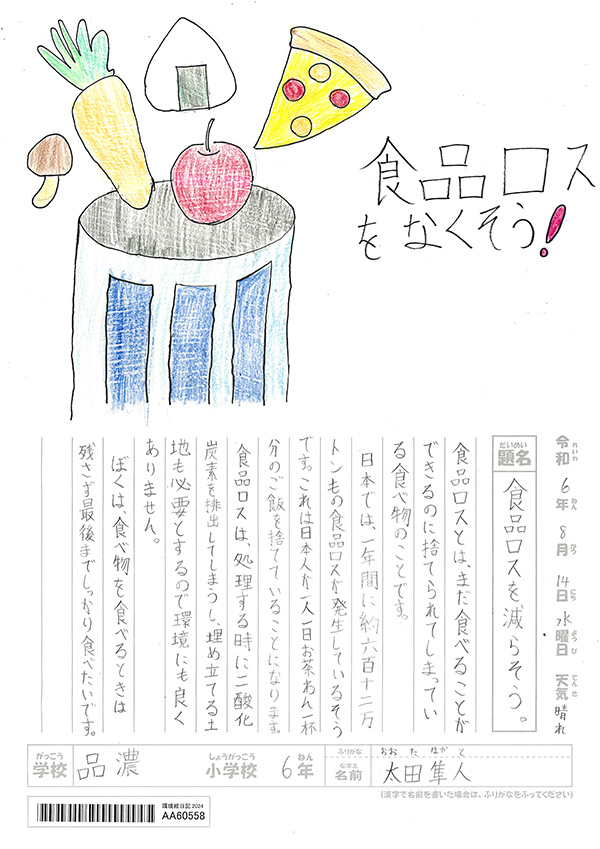 食品ロス
をなくそう!
令和6年8月14日水曜日 天気晴れ
れいわ ねん がつ にち ようび てんき
だいめい
題名
食品ロスを減らそう。
食品ロスとは、まだ食べることが
できるのに捨てられてしまってい
る食べ物のことです。
日本では、一年間に約六百十二万
トンもの食品ロスが発生しているそう
です。これは日本人が一人一日お茶わん一杯
分のご飯を捨てていることになります。
食品ロスは、処理する時に二酸化
炭素を排出してしまうし、埋め立てる土
地も必要とするので環境にも良く
ありません。
ぼくは、食べ物を食べるときは
残さず最後までしっかり食べたいです。
がっこう しょうがっこう ねん ふりがな おおた はやと
学校 品濃 小学校 6年 なまえ 名前 太田隼人
(漢字で名前を書いた場合は、ふりがなをふってください)
環境絵日記2024
AA60558